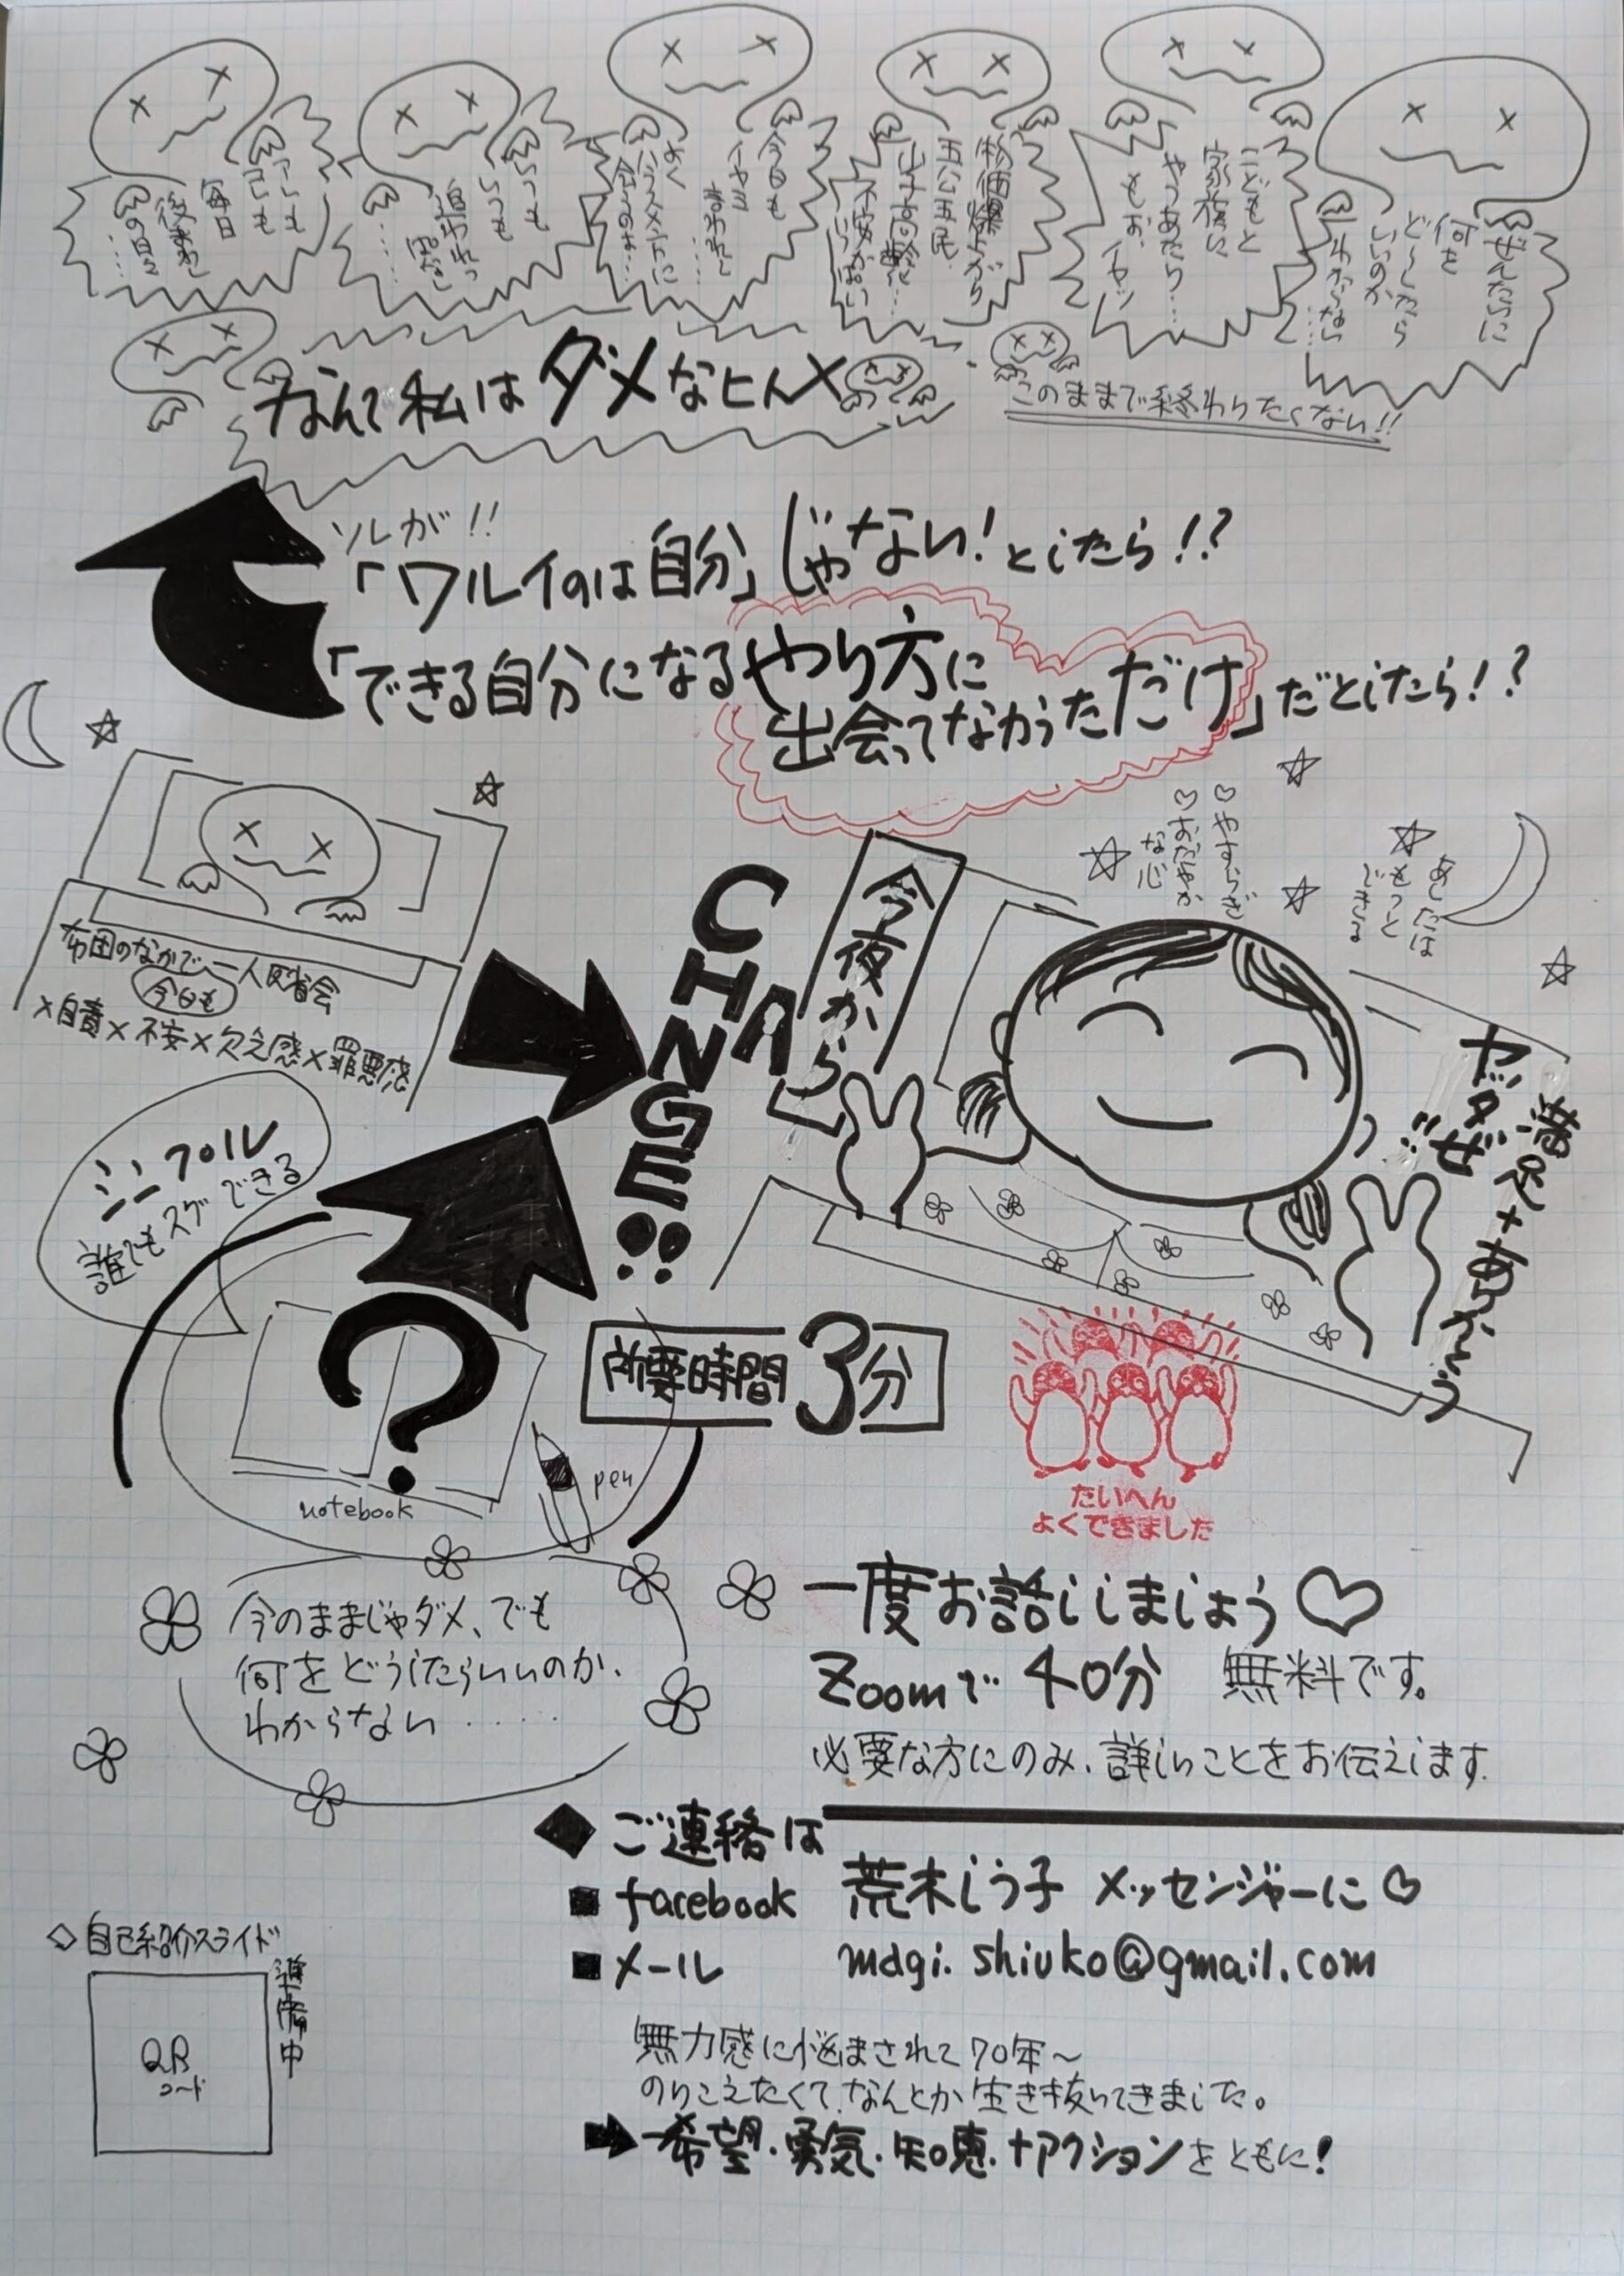 毎日
いつも
いつも
今日も
物価爆上がり
五公五民
少子高齢
不安がいっぱい
こどもと
家族に
やつあたり…
もお、イヤッ
ぜんたいに
何を
どーしたら
いいのか
わからない
……
なんて私はダメなヒト
このままで終わりたくない!!
ソレが!!
「ワルイのは自分」じゃない!としたら!?
「できる自分になるやり方に
出会ってなかっただけ」だとしたら!?
布団のなかで一人反省会
今日も
×自責×不安×欠乏感×罪悪感
CHANGE!!
今夜から
♡やすらぎ
♡おだやか
な心
あしたは
もっと
できる
ヤッタぜ!!
満足+ありがとう
シンプル
誰でもスグできる
?
notebook
pen
所要時間3分
たいへん
よくできました
今のままじゃダメ、でも
何をどうしたらいいのか、
わからない……
一度お話ししましょう♡
Zoomで40分 無料です。
必要な方にのみ、詳しいことをお伝えします.
◆ご連絡は
■facebook 荒木しう子 メッセンジャーに♡
■メール mdgi.shiuko@gmail.com
◇自己紹介スライド
準備中
QR
コード
無力感に悩まされて70年〜
のりこえたくて、なんとか生き抜いてきました。
➡希望・勇気・知恵・+アクションをともに!